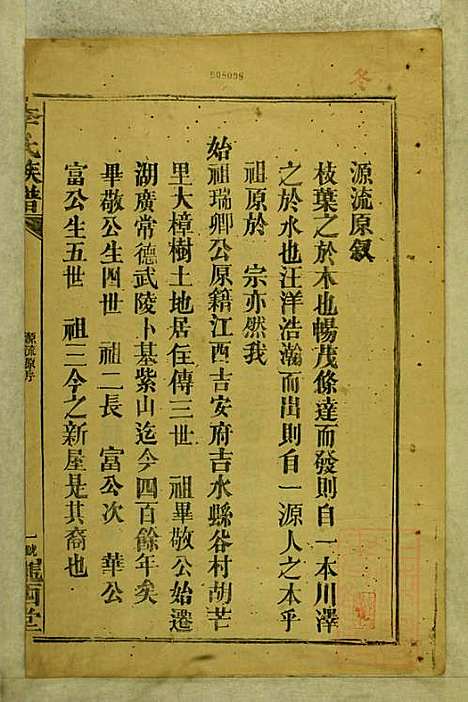 008098
冬
源流原叙
枝葉之於木也暢茂條達而發則自一本川澤
之於水也汪洋浩瀚而出則自一源人之本乎
祖原於 宗亦然我
始祖瑞卿公原籍江西吉安府吉水縣谷村胡芒
里大樟樹土地居住傳三世 祖畢敬公始遷
湖廣常德武陵卜基紫山迄今四百餘年矣
畢敬公生四世 祖二長 富公次 華公
富公生五世 祖三今之新屋是其裔也
李氏族譜
源流原序
一號
隴西堂